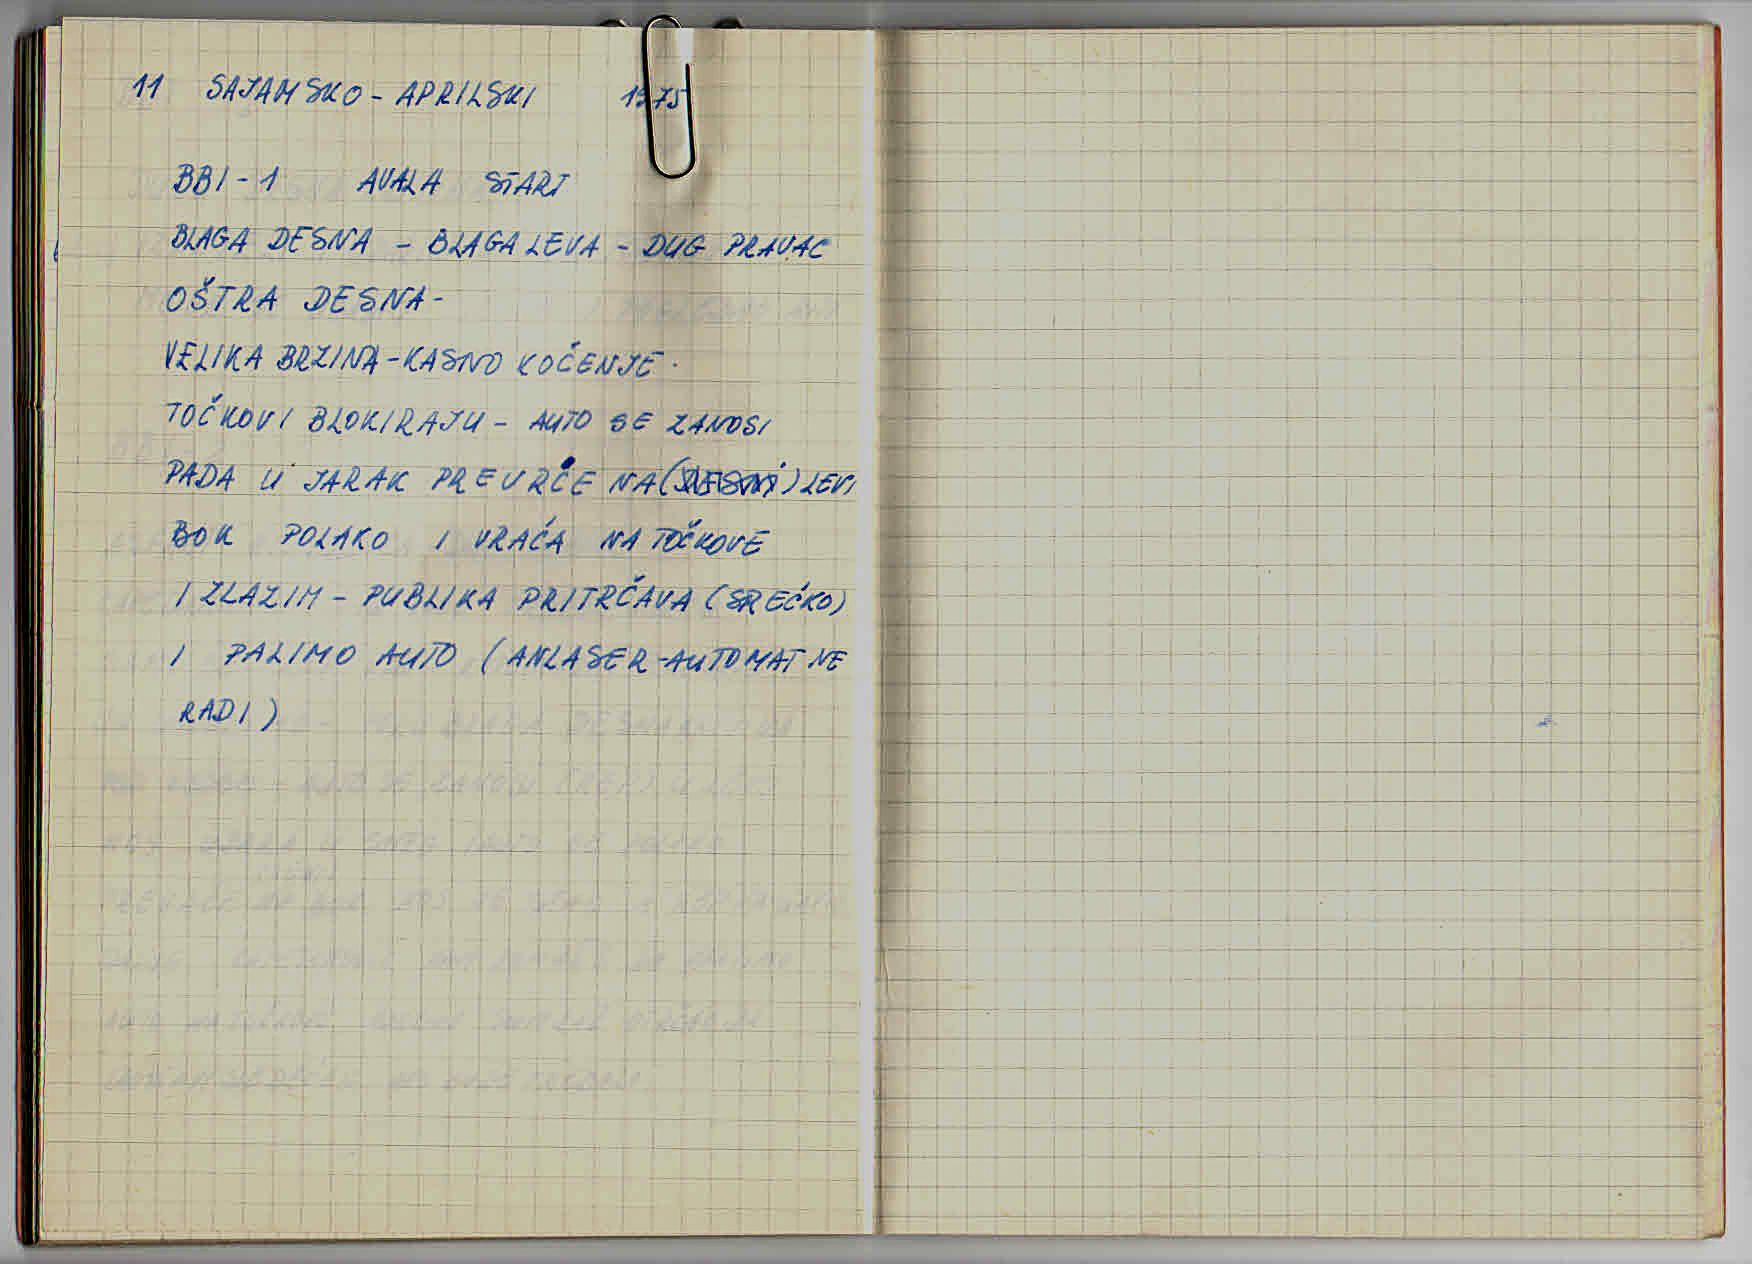 11 SAJAMSKO - APRILSKI 1975
BBI - 1 AVALA START
BLAGA DESNA - BLAGA LEVA - DUG PRAVAC
OŠTRA DESNA -
VELIKA BRZINA - KASNO KOČENJE.
TOČKOVI BLOKIRAJU - AUTO SE ZANOSI
PADA U JARAK PREVRČE NA (DESNI) LEVI
BOK POLAKO I VRAĆA NA TOČKOVE
IZLAZIM - PUBLIKA PRITRČAVA (SREĆKO)
I PALIMO AUTO (ANLASER - AUTOMAT NE
RADI)